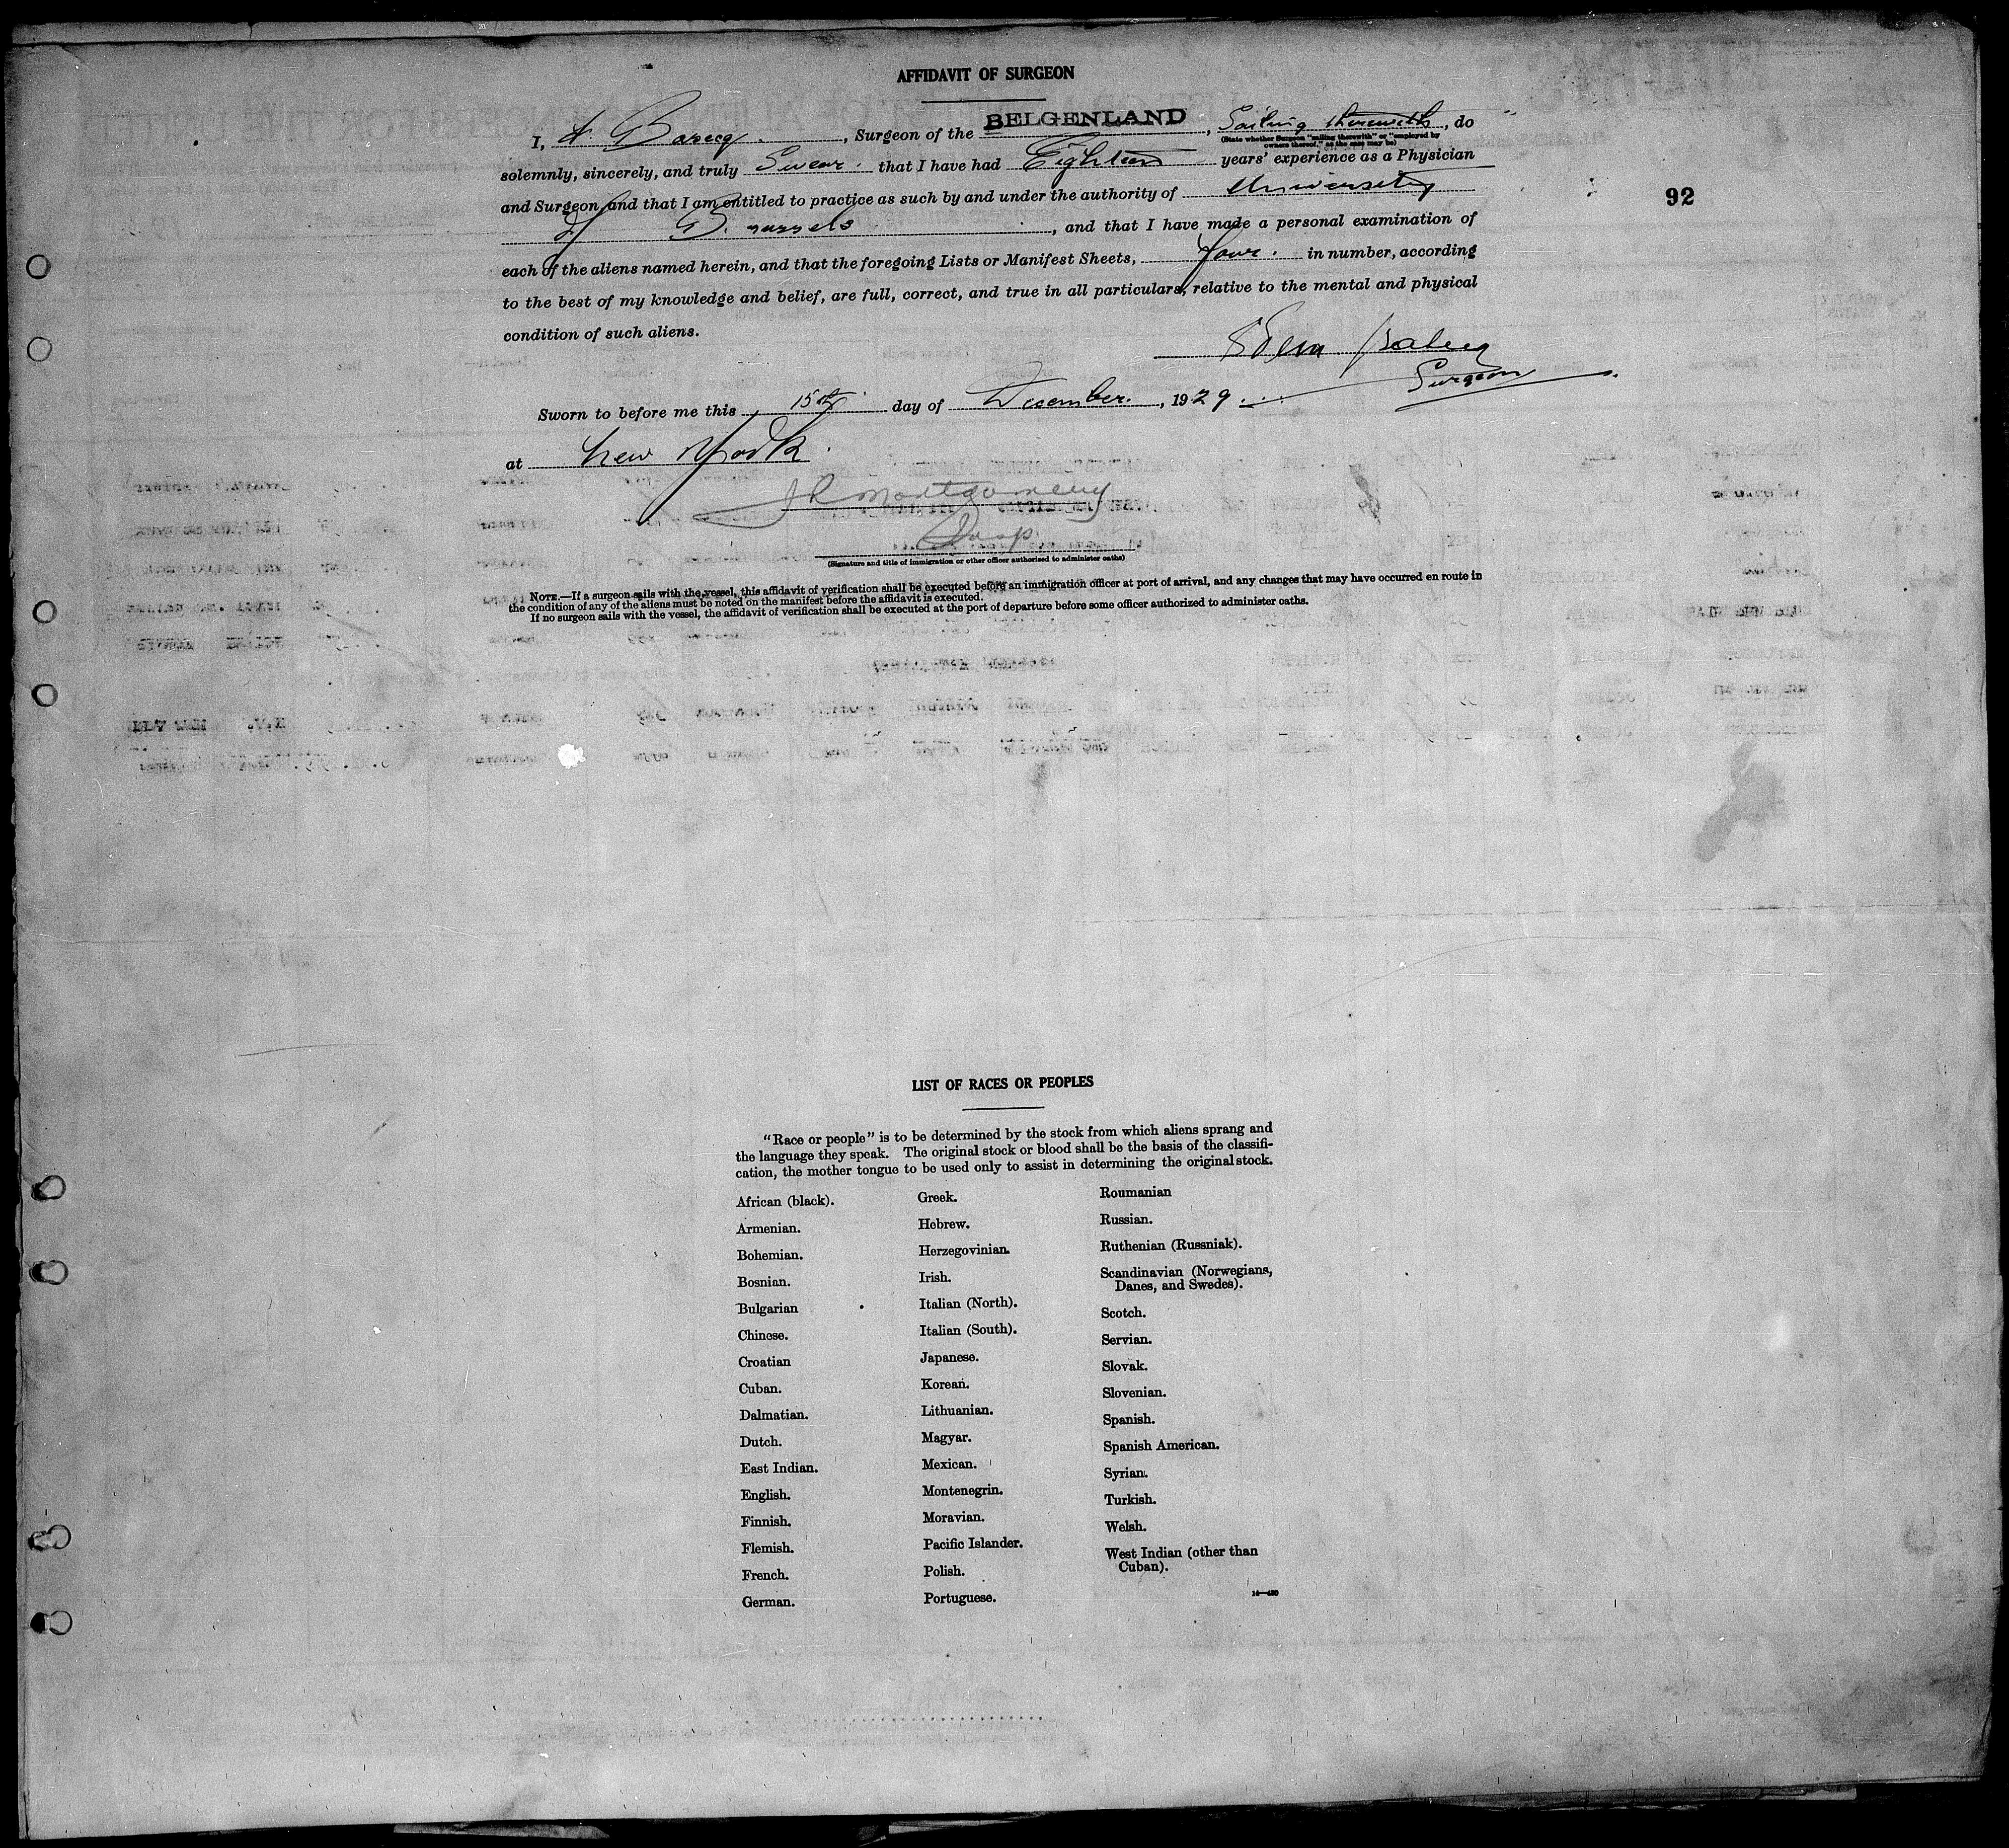 AFFIDAVIT OF SURGEON
I, A. Barecq, Surgeon of the BELGENLAND, Sailing therewith, do
(State whether Surgeon "sailing therewith" or "employed by
owners thereof," as the case may be)
solemnly, sincerely, and truly Swear. that I have had Eighteen years' experience as a Physician
and Surgeon, and that I am entitled to practice as such by and under the authority of University
92
of Brussels, and that I have made a personal examination of
each of the aliens named herein, and that the foregoing Lists or Manifest Sheets, four. in number, according
to the best of my knowledge and belief, are full, correct, and true in all particulars, relative to the mental and physical
condition of such aliens.
Surgeon
Sworn to before me this 15th day of December, 1929
at New York.
J R Montgomery
(Signature and title of immigration or other officer authorized to administer oaths)
NOTE.—If a surgeon sails with the vessel, this affidavit of verification shall be executed before an immigration officer at port of arrival, and any changes that may have occurred en route in
the condition of any of the aliens must be noted on the manifest before the affidavit is executed.
If no surgeon sails with the vessel, the affidavit of verification shall be executed at the port of departure before some officer authorized to administer oaths.
LIST OF RACES OR PEOPLES
"Race or people" is to be determined by the stock from which aliens sprang and
the language they speak. The original stock or blood shall be the basis of the classifi-
cation, the mother tongue to be used only to assist in determining the original stock.
African (black).
Armenian.
Bohemian.
Bosnian.
Bulgarian
Chinese.
Croatian
Cuban.
Dalmatian.
Dutch.
East Indian.
English.
Finnish.
Flemish.
French.
German.
Greek.
Hebrew.
Herzegovinian.
Irish.
Italian (North).
Italian (South).
Japanese.
Korean.
Lithuanian.
Magyar.
Mexican.
Montenegrin.
Moravian.
Pacific Islander.
Polish.
Portuguese.
Roumanian
Russian.
Ruthenian (Russniak).
Scandinavian (Norwegians,
Danes, and Swedes).
Scotch.
Servian.
Slovak.
Slovenian.
Spanish.
Spanish American.
Syrian.
Turkish.
Welsh.
West Indian (other than
Cuban).
14—430